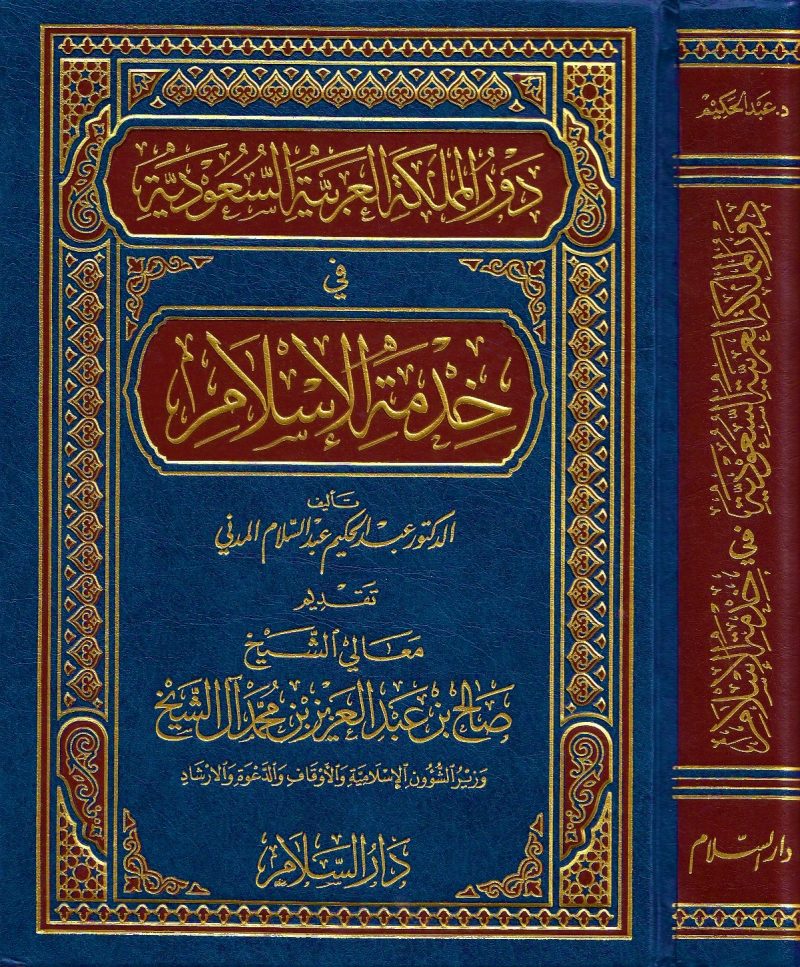 دَوْرُ المَمْلَكَةِ العَرَبِيَّةِ السُّعُودِيَّةِ
في
خِدْمَةِ الإِسْلَامِ
تأليف
الدكتور عبد الحكيم عبد السلام المدني
تقديم
معالي الشيخ
صالح بن عبد العزيز بن محمد آل الشيخ
وزير الشؤون الإسلامية والأوقاف والدعوة والارشاد
دار السلام
د. عبد الحكيم
دور المملكة العربية السعودية في خدمة الإسلام
دار السلام